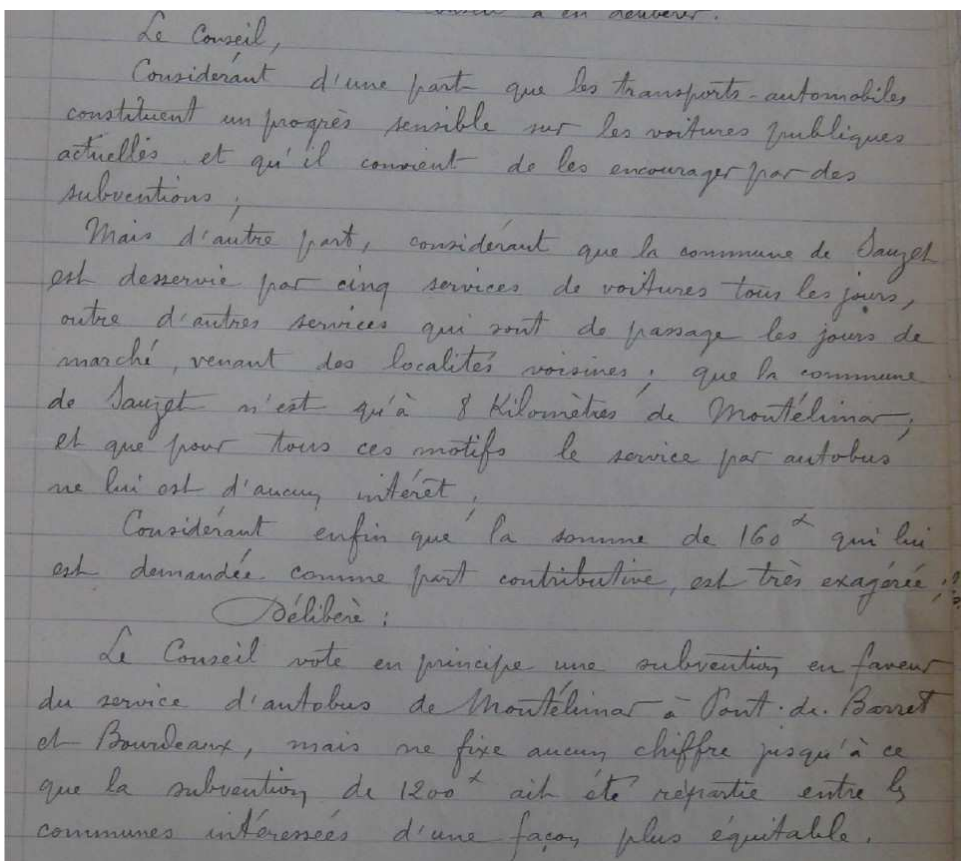 à en délibérer.
Le Conseil,
Considérant d'une part que les transports-automobiles
constituent un progrès sensible sur les voitures publiques
actuelles et qu'il convient de les encourager par des
subventions ;
Mais d'autre part, considérant que la commune de Sauzet
est desservie par cinq services de voitures tous les jours,
outre d'autres services qui sont de passage les jours de
marché, venant des localités voisines ; que la commune
de Sauzet n'est qu'à 8 Kilomètres de Montélimar ;
et que pour tous ces motifs le service par autobus
ne lui est d'aucun intérêt ;
Considérant enfin que la somme de 160 qui lui
est demandée comme part contributive, est très exagérée ;
Délibère :
Le Conseil vote en principe une subvention en faveur
du service d'autobus de Montélimar à Pont-de-Barret
et Bourdeaux, mais ne fixe aucun chiffre jusqu'à ce
que la subvention de 1200 ait été répartie entre les
communes intéressées d'une façon plus équitable.